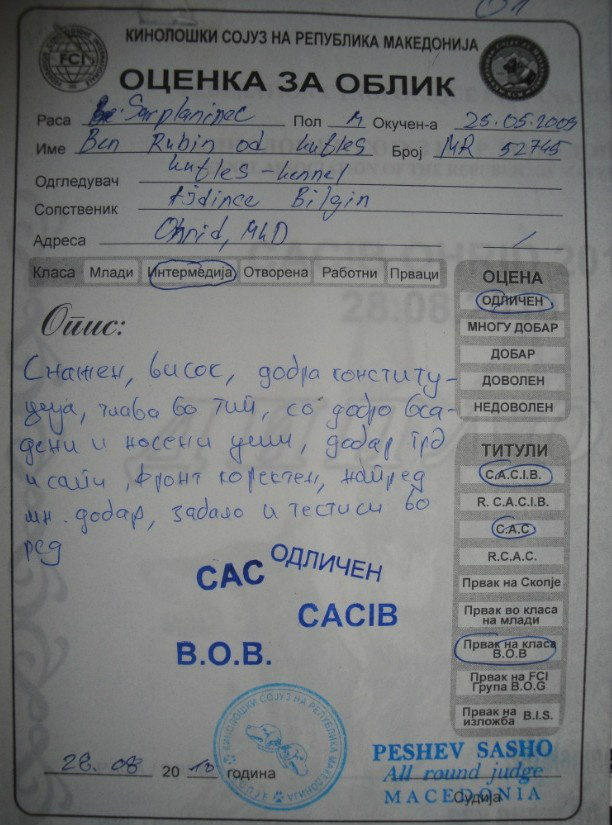 КИНОЛОШКИ СОЈУЗ НА РЕПУБЛИКА МАКЕДОНИЈА
FCI
ОЦЕНКА ЗА ОБЛИК
Раса Šarplaninec Пол М Окучен-а 25.05.2009
Име Ben Rubin od kufles Број MR 52745
Одгледувач kufles-kennel
Сопственик Bilgin
Адреса Ohrid, MKD
Класа Млади Интермедија Отворена Работни Прваци
ОЦЕНА
ОДЛИЧЕН
МНОГУ ДОБАР
ДОБАР
ДОВОЛЕН
НЕДОВОЛЕН
Опис:
Снажен, висок, добра конститу-
ција, глава во тип, со добро вса-
дени и носени уши, добар грб
и сапи, фронт коректен, напред
мн. добар, забало и тестиси во
ред
ТИТУЛИ
C.A.C.I.B.
R. C.A.C.I.B.
C.A.C
R.C.A.C.
Првак на Скопје
Првак во класа
на млади
Првак на класа
B.O.B
Првак на FCI
Група B.O.G
Првак на
изложба B.I.S.
CAC ОДЛИЧЕН
CACIB
B.O.B.
КИНОЛОШКИ СОЈУЗ НА РЕПУБЛИКА МАКЕДОНИЈА
28. 08 2010 година
PESHEV SASHO
All round judge
MACEDONIA
Судија